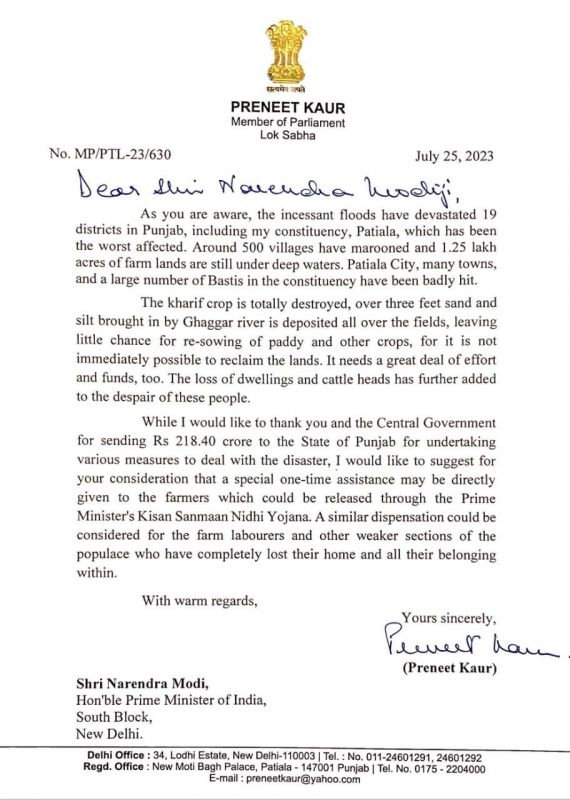 सत्यमेव जयते
PRENEET KAUR
Member of Parliament
Lok Sabha
No. MP/PTL-23/630
July 25, 2023
Dear Shri Narendra Modiji,
As you are aware, the incessant floods have devastated 19
districts in Punjab, including my constituency, Patiala, which has been
the worst affected. Around 500 villages have marooned and 1.25 lakh
acres of farm lands are still under deep waters. Patiala City, many towns,
and a large number of Bastis in the constituency have been badly hit.
The kharif crop is totally destroyed, over three feet sand and
silt brought in by Ghaggar river is deposited all over the fields, leaving
little chance for re-sowing of paddy and other crops, for it is not
immediately possible to reclaim the lands. It needs a great deal of effort
and funds, too. The loss of dwellings and cattle heads has further added
to the despair of these people.
While I would like to thank you and the Central Government
for sending Rs 218.40 crore to the State of Punjab for undertaking
various measures to deal with the disaster, I would like to suggest for
your consideration that a special one-time assistance may be directly
given to the farmers which could be released through the Prime
Minister's Kisan Sanmaan Nidhi Yojana. A similar dispensation could be
considered for the farm labourers and other weaker sections of the
populace who have completely lost their home and all their belonging
within.
With warm regards,
Yours sincerely,
Preneet Kaur
(Preneet Kaur)
Shri Narendra Modi,
Hon'ble Prime Minister of India,
South Block,
New Delhi.
Delhi Office : 34, Lodhi Estate, New Delhi-110003 | Tel. : No. 011-24601291, 24601292
Regd. Office : New Moti Bagh Palace, Patiala - 147001 Punjab | Tel. No. 0175 - 2204000
E-mail : preneetkaur@yahoo.com